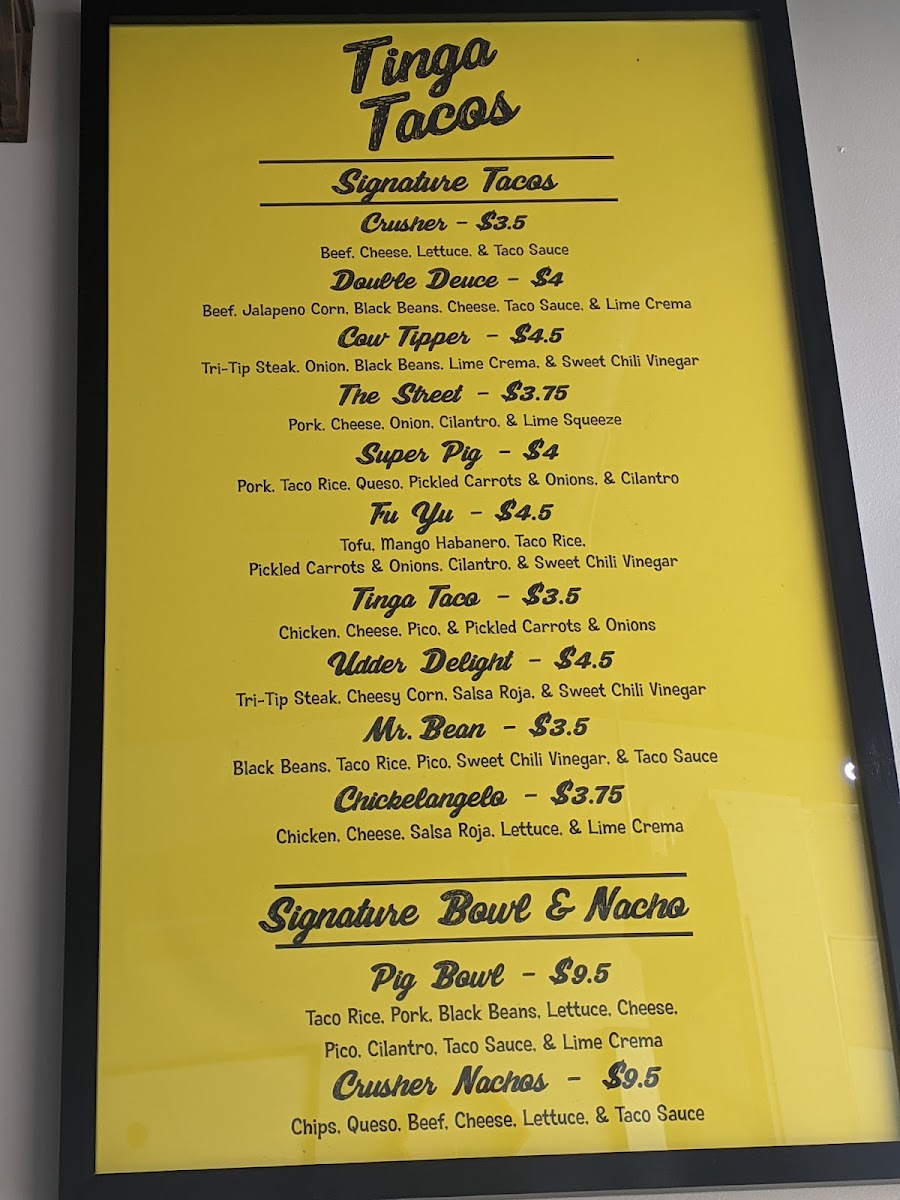 Tinga
Tacos
Signature Tacos
Crusher - $3.5
Beef, Cheese, Lettuce, & Taco Sauce
Double Deuce - $4
Beef, Jalapeno Corn, Black Beans, Cheese, Taco Sauce, & Lime Crema
Cow Tipper - $4.5
Tri-Tip Steak, Onion, Black Beans, Lime Crema, & Sweet Chili Vinegar
The Street - $3.75
Pork, Cheese, Onion, Cilantro, & Lime Squeeze
Super Pig - $4
Pork, Taco Rice, Queso, Pickled Carrots & Onions, & Cilantro
Fu Yu - $4.5
Tofu, Mango Habanero, Taco Rice,
Pickled Carrots & Onions, Cilantro, & Sweet Chili Vinegar
Tinga Taco - $3.5
Chicken, Cheese, Pico, & Pickled Carrots & Onions
Udder Delight - $4.5
Tri-Tip Steak, Cheesy Corn, Salsa Roja, & Sweet Chili Vinegar
Mr. Bean - $3.5
Black Beans, Taco Rice, Pico, Sweet Chili Vinegar, & Taco Sauce
Chickelangelo - $3.75
Chicken, Cheese, Salsa Roja, Lettuce, & Lime Crema
Signature Bowl & Nacho
Pig Bowl - $9.5
Taco Rice, Pork, Black Beans, Lettuce, Cheese,
Pico, Cilantro, Taco Sauce, & Lime Crema
Crusher Nachos - $9.5
Chips, Queso, Beef, Cheese, Lettuce, & Taco Sauce